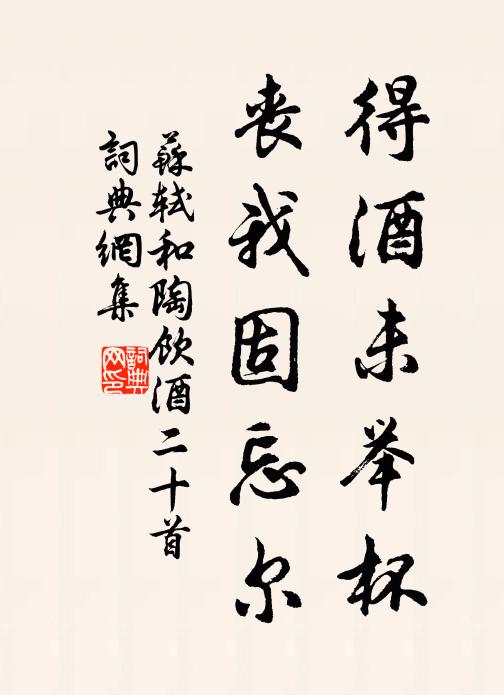 得酒未举杯
丧我固忘尔
蘇轼和陶饮酒二十首
詞典網集
詞典网印